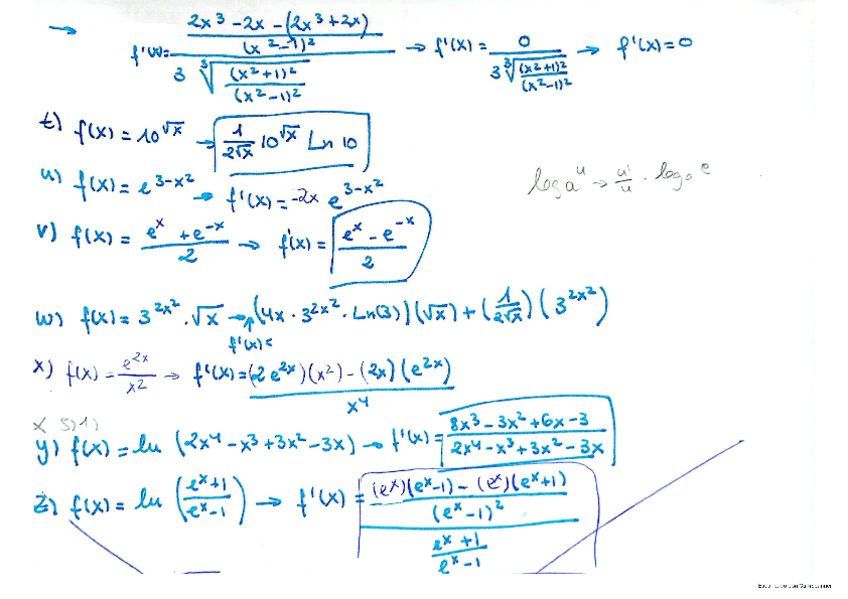 → f'(x)= (2x³ - 2x - (2x³ + 2x) / (x² - 1)²) / (3 ∛((x²+1)² / (x²-1)²)) → f'(x) = 0 / (3 ∛((x²+1)² / (x²-1)²)) → f'(x) = 0
t) f(x) = 10^√x → 1/(2√x) 10^√x Ln 10
u) f(x) = e^(3-x²) → f'(x) = -2x e^(3-x²)
log a^u → u'/u · log a^e
v) f(x) = (e^x + e^-x)/2 → f'(x) = (e^x - e^-x)/2
w) f(x) = 3^(2x²) · √x → (4x · 3^(2x²) · Ln(3))(√x) + (1/(2√x))(3^(2x²))
f'(x) =
x) f(x) = e^(2x)/x² → f'(x) = ((2e^(2x))(x²) - (2x)(e^(2x)))/x⁴
x 5)1)
y) f(x) = ln (2x⁴ - x³ + 3x² - 3x) → f'(x) = (8x³ - 3x² + 6x - 3)/(2x⁴ - x³ + 3x² - 3x)
z) f(x) = ln ((e^x + 1)/(e^x - 1)) → f'(x) = (((e^x)(e^x - 1) - (e^x)(e^x + 1))/(e^x - 1)²)/((e^x + 1)/(e^x - 1))